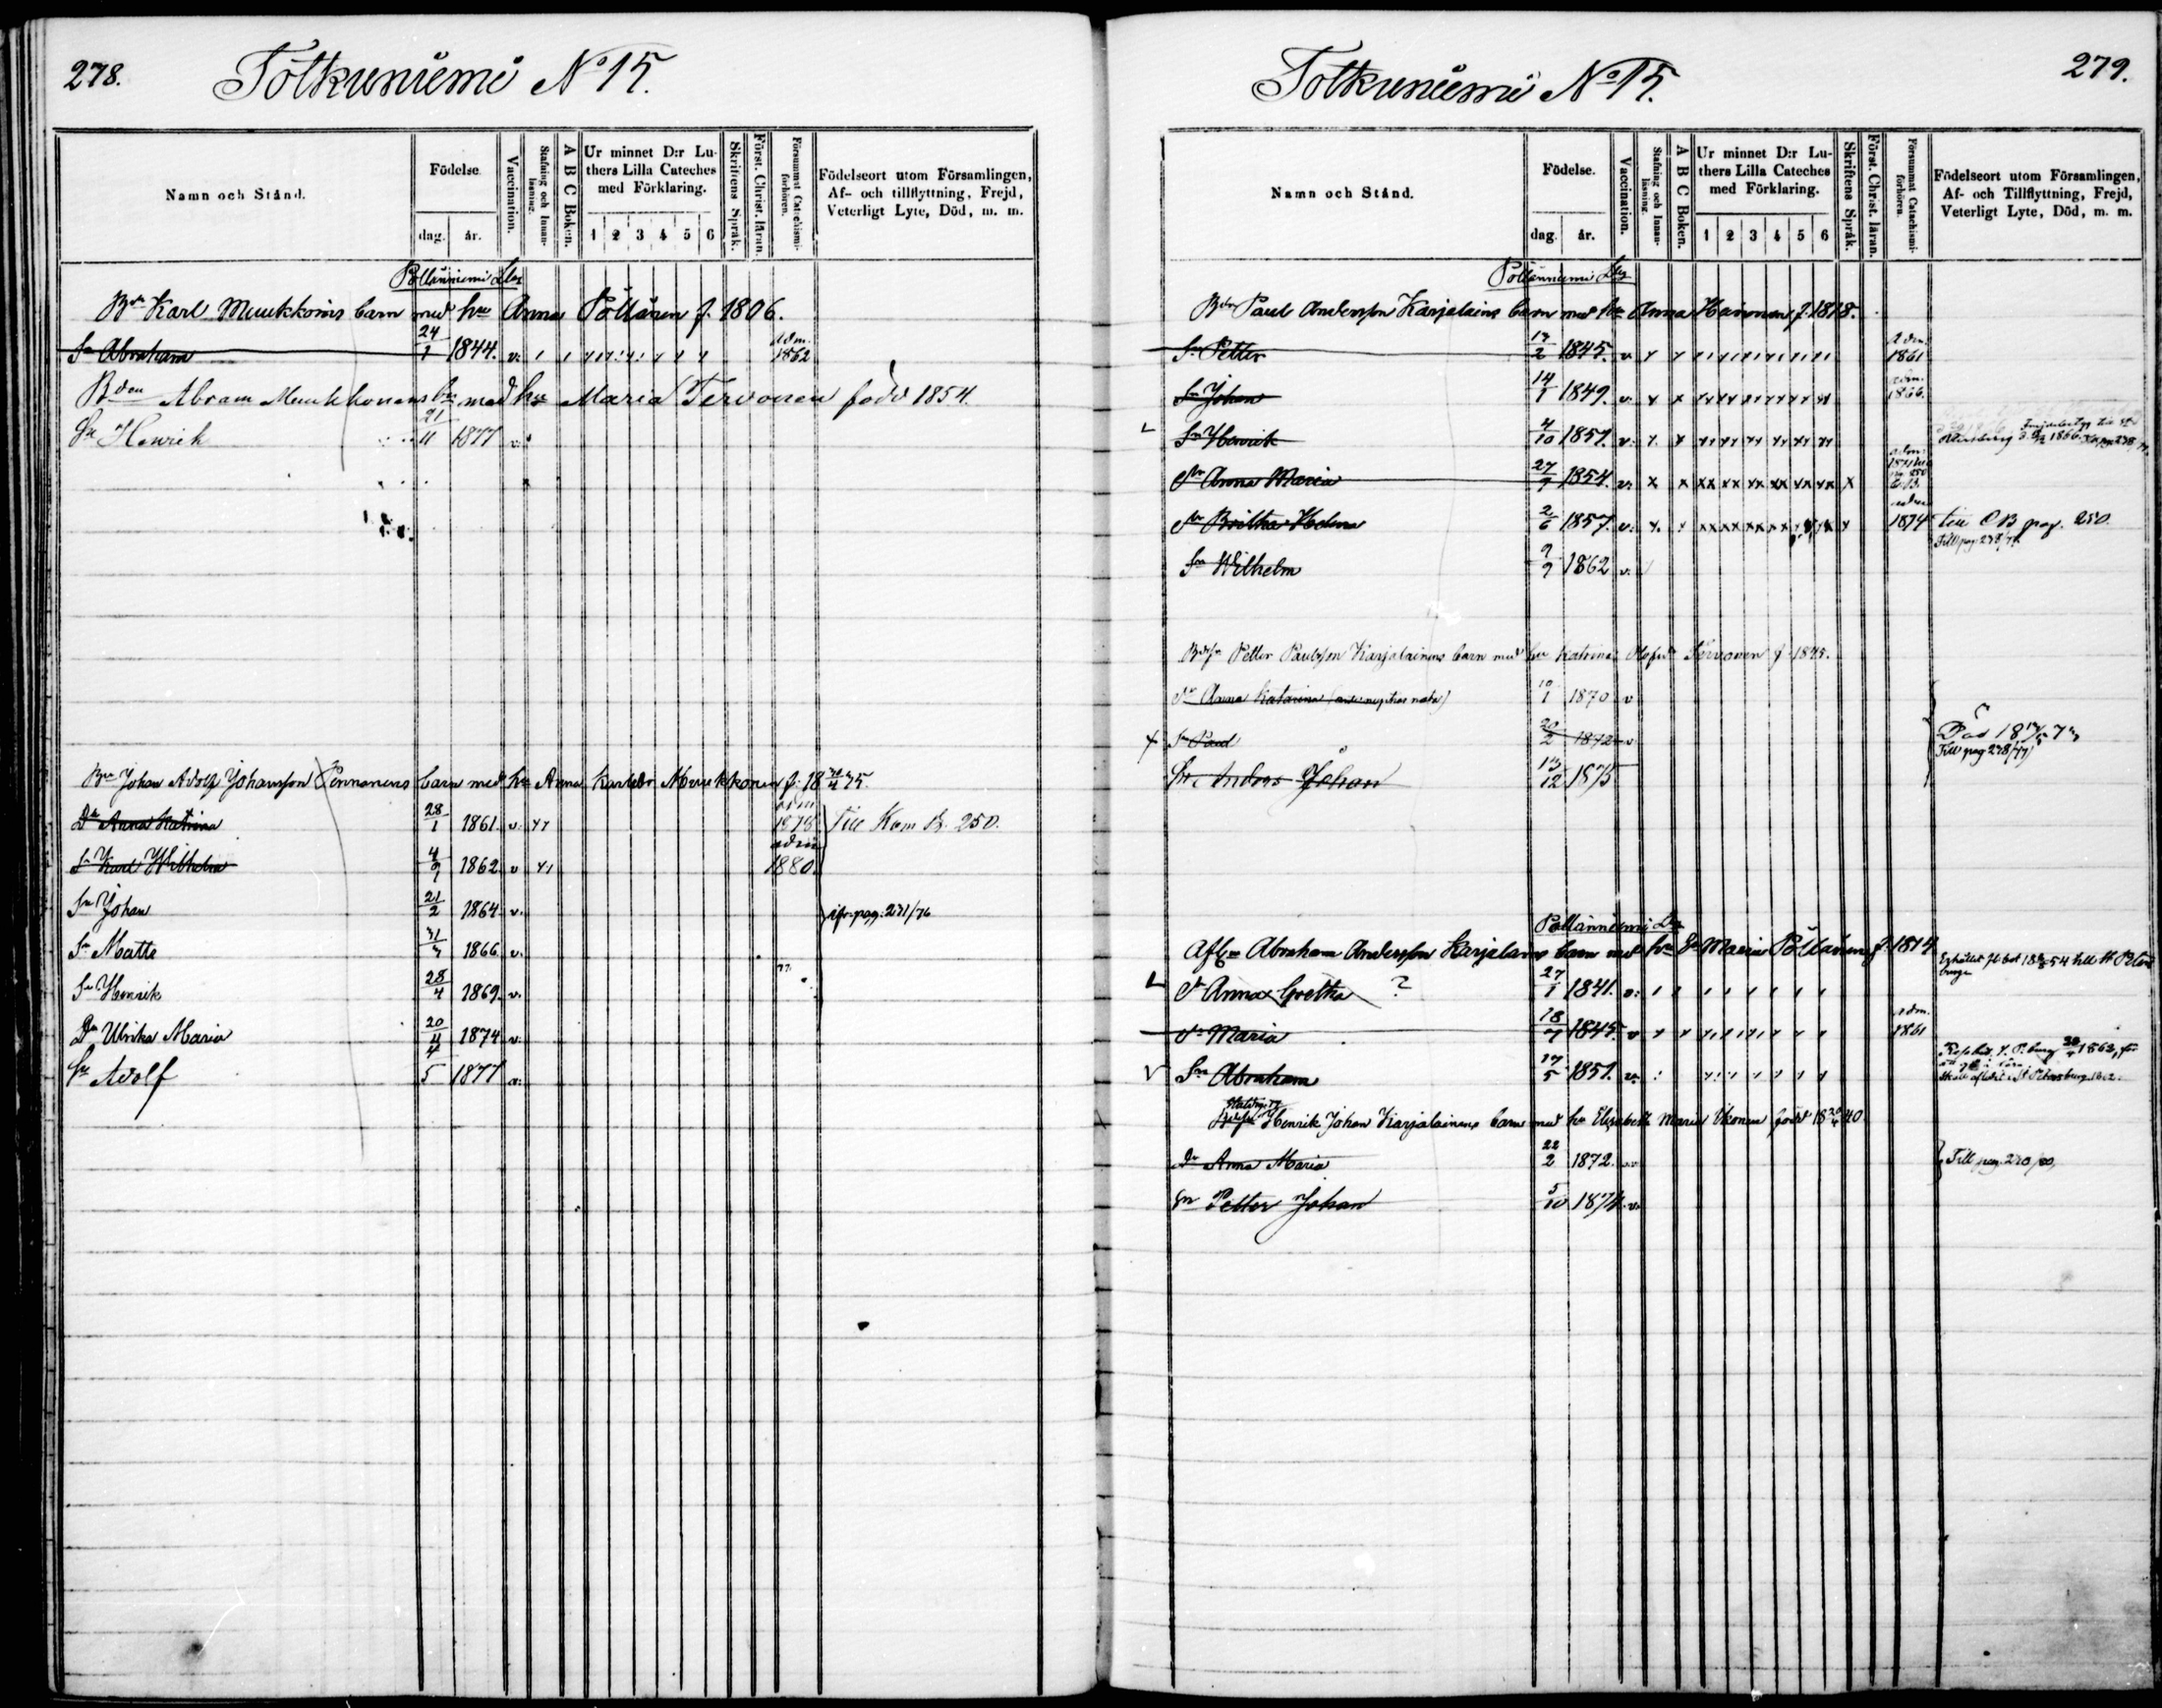 278.
Totkuniemi No 15.
Namn och Stånd.
Födelse.
dag. år.
Vaccination.
Stafning och Innan-läsning.
A B C Boken.
Ur minnet D:r Lu-
thers Lilla Cateches
med Förklaring.
1 2 3 4 5 6
Skriftens Språk.
Först. Christ. läran.
Försummat Catechismi-förhören.
Födelseort utom Församlingen,
Af- och tillflyttning, Frejd,
Veterligt Lyte, Död, m. m.
Pöllänniemi
Bdn Karl Muukkoins barn med hu Anna Pöllänen f. 1806.
Sn Abraham 24/1 1844. v. adm. 1862
Bden Abram Muukkonens bn med hu Maria Tervonen född 1854.
Sn Henrik 21/11 1877 v.
Bdn Johan Adolf Johansson Pennanens barn med hu Anna Karlsdr Muukkonen f. 18
Dr Anna Katrina 28/1 1861. v. adm 1878 Till Kom B. 250.
Sn Karl Wilhelm 4/9 1862 v adm 1880.
Sn Johan 21/2 1864 v. ifr. pag. 271/76
Sn Matts 1866 v.
Sn Henrik 28/4 1869. v.
Dr Ulrika Maria 20/11 1874 v.
Sn Adolf 4/5 1877 v.
279.
Totkuniemi No 15.
Namn och Stånd.
Födelse.
dag. år.
Vaccination.
Stafning och Innan-läsning.
A B C Boken.
Ur minnet D:r Lu-
thers Lilla Cateches
med Förklaring.
1 2 3 4 5 6
Skriftens Språk.
Först. Christ. läran.
Försummat Catechismi-förhören.
Födelseort utom Församlingen,
Af- och Tillflyttning, Frejd,
Veterligt Lyte, Död, m. m.
Pöllänniemi
Bdn Paul Andersson Karjalains barn med hu Anna Hainnen f. 1818.
Sn Petter 1845. v adm. 1861
Sn Johan 14/1 1849. v. adm. 1866.
Sn Henrik 4/10 1851. v.
Dr Anna Maria 27/7 1854. v.
Dr Britha Helena 2/6 1857. v. 1874 till CB pag. 250.
Till pag. 278/77
Sn Wilhelm 9/9 1862 v.
Petter Paulsson Karjalainens barn med hu Katrina Olofsdr Tervonen f. 1845.
Dr Anna Katarina (ante nuptias nata) 10/1 1870 v
Sn Paul 20/2 1872 v Död
Till pag 278/77
Sn Anders Johan 13/12 1875
Pöllänniemi
Afl:ne Abraham Andersson Karjalains barn med hu Maria Pöllänen f. 1814
Dr Anna Gretha ? 27/1 1841. v.
Dr Maria 18/7 1845. v adm. 1861
Sn Abraham 17/5 1851. v. 1862
Henrik Johan Karjalainens barn med hu Elisabeth Maria Ikonen född 18 40.
Dr Anna Maria 22/2 1872. Till pag. 270/80,
Sn Petter Johan 5/10 1874 v.